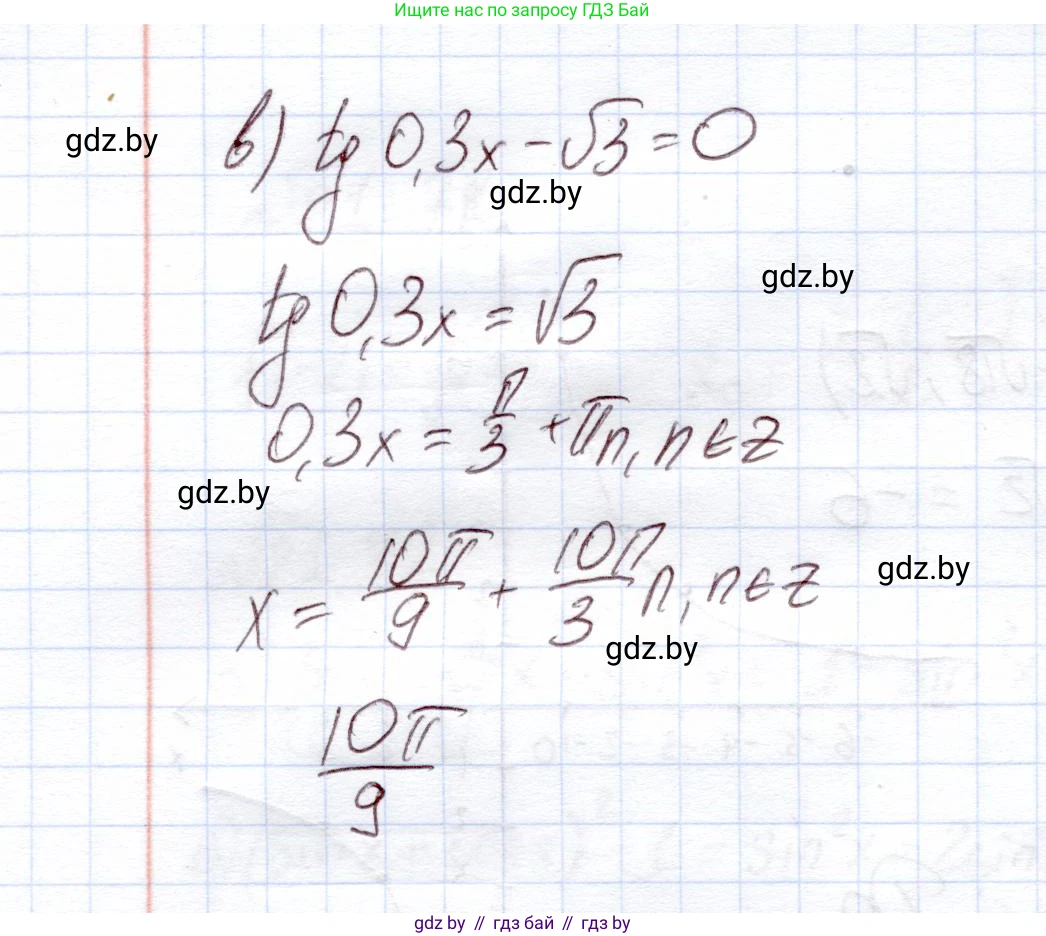 Ищите нас по запросу ГДЗ Бай
gdz.by
в) tg 0,3x - √3 = 0
gdz.by
gdz.by
tg 0,3x = √3
0,3x = π/3 + πn, n ∈ Z
gdz.by
x = 10π/9 + 10π/3 n, n ∈ Z
gdz.by
gdz.by
10π/9
gdz by // гдз бай // гдз by